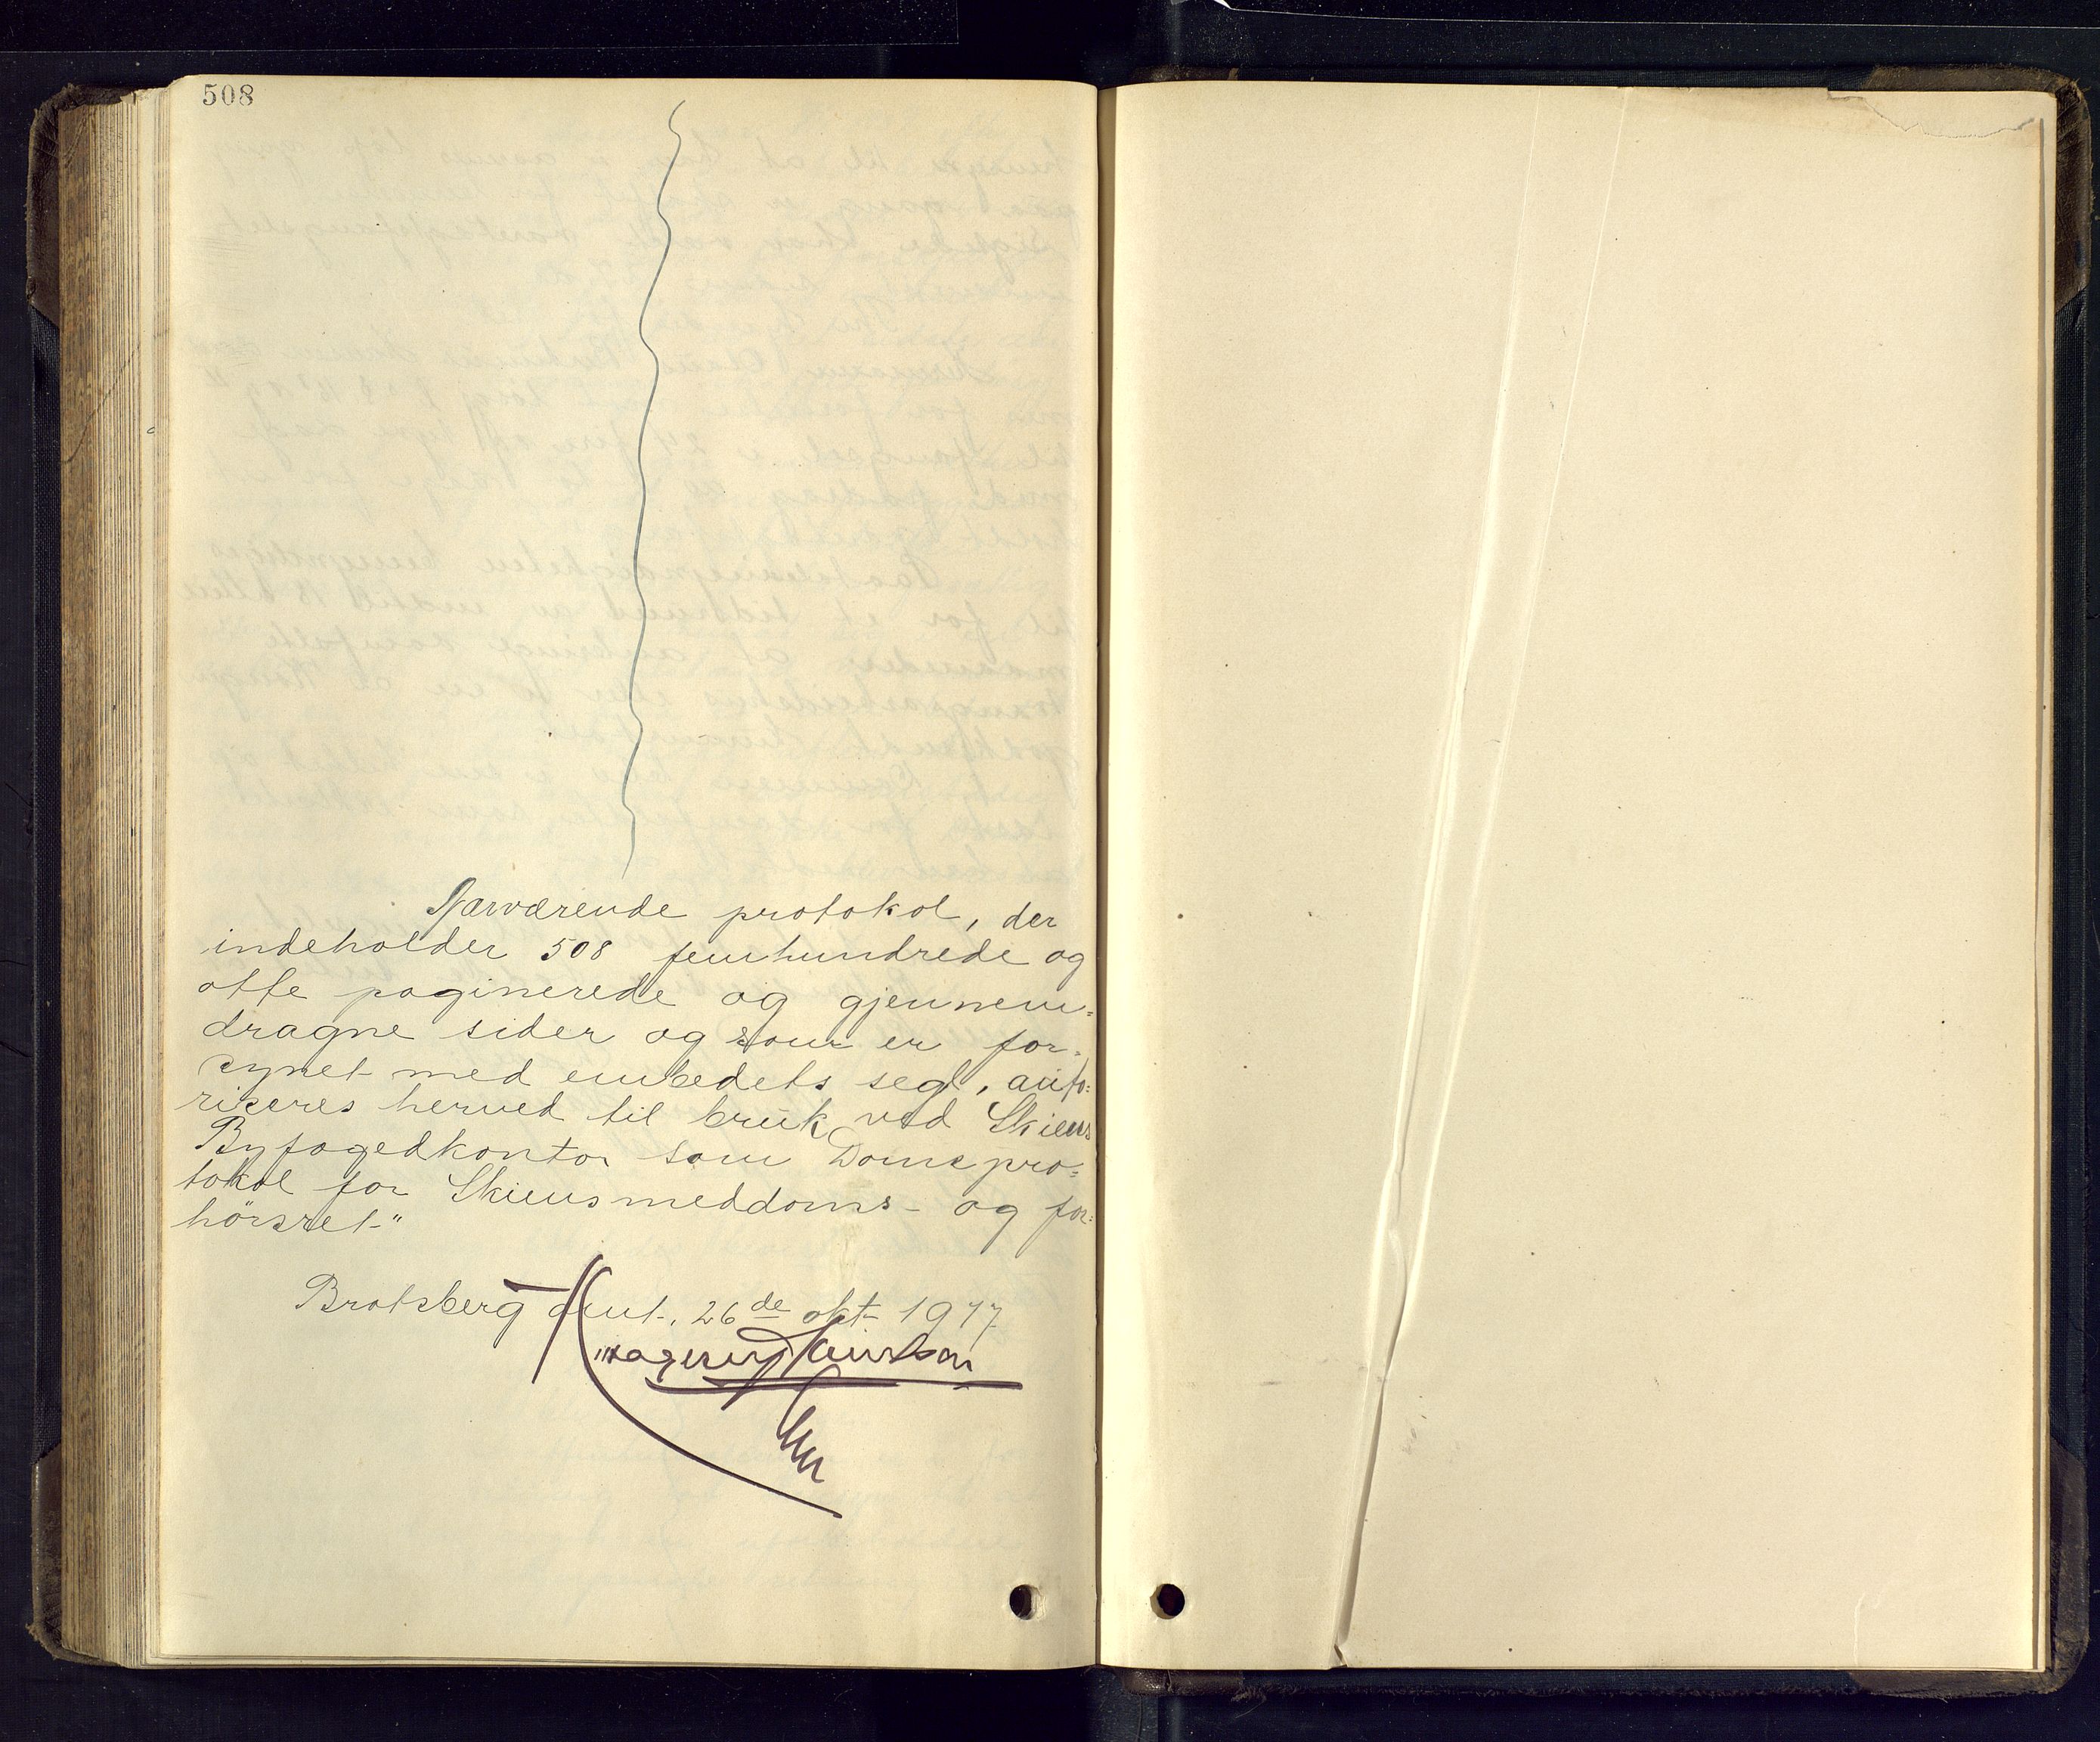 508
Nærværende protokol, der
indeholder 508 femhundrede og
otte paginerede og gjennem-
dragne sider og som er for-
synet med embedets segl, auto-
riseres herved til bruk ved Skiens
Byfogedkontor som Domspro-
tokol for Skiens meddoms- og for-
hörsret"
Bratsberg amt, 26de okt 1917